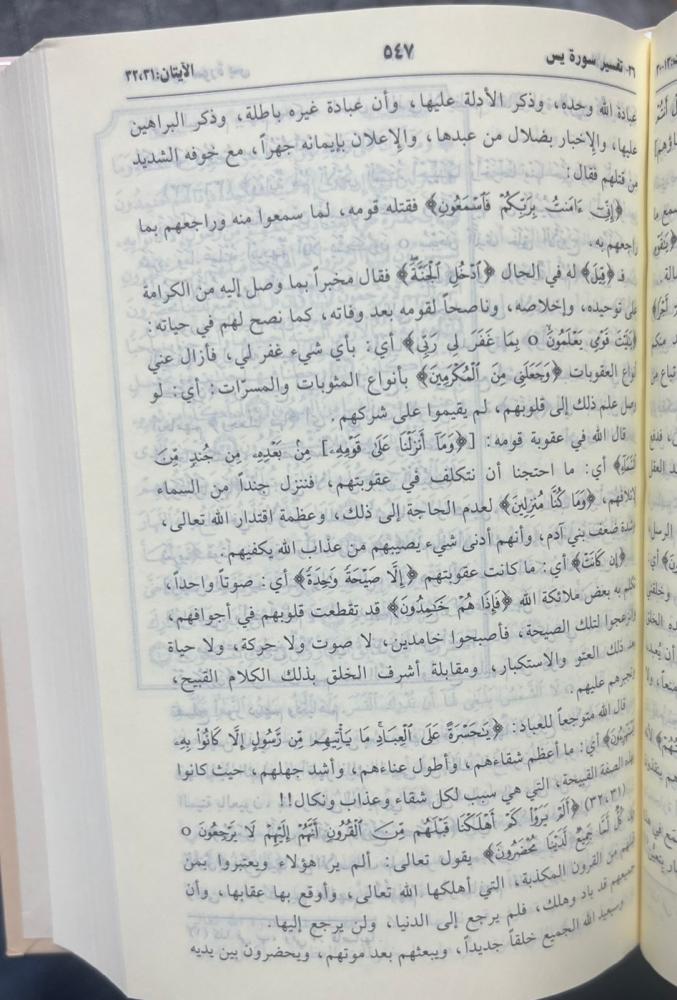 ٣٦- تفسير سورة يس
٥٤٧
الآيتان: ٣١، ٣٢
عبادة الله وحده، وذكر الأدلة عليها، وأن عبادة غيره باطلة، وذكر البراهين
عليها، والإخبار بضلال من عبدها، والإعلان بإيمانه جهراً، مع خوفه الشديد
من قتلهم فقال:
﴿إِنِّىٓ ءَامَنتُ بِرَبِّكُمْ فَٱسْمَعُونِ﴾ فقتله قومه، لما سمعوا منه وراجعهم بما
راجعهم به.
فـ ﴿قِيلَ﴾ له في الحال ﴿ٱدْخُلِ ٱلْجَنَّةَ﴾ فقال مخبراً بما وصل إليه من الكرامة
على توحيده، وإخلاصه، وناصحاً لقومه بعد وفاته، كما نصح لهم في حياته:
﴿يَٰلَيْتَ قَوْمِى يَعْلَمُونَ ○ بِمَا غَفَرَ لِى رَبِّى﴾ أي: بأي شيء غفر لي، فأزال عني
أنواع العقوبات ﴿وَجَعَلَنِى مِنَ ٱلْمُكْرَمِينَ﴾ بأنواع المثوبات والمسرّات: أي: لو
وصل علم ذلك إلى قلوبهم، لم يقيموا على شركهم.
قال الله في عقوبة قومه: [﴿وَمَآ أَنزَلْنَا عَلَىٰ قَوْمِهِۦ] مِنۢ بَعْدِهِۦ مِن جُندٍ مِّنَ
ٱلسَّمَآءِ﴾ أي: ما احتجنا أن نتكلف في عقوبتهم، فننزل جنداً من السماء
لإتلافهم، ﴿وَمَا كُنَّا مُنزِلِينَ﴾ لعدم الحاجة إلى ذلك، وعظمة اقتدار الله تعالى،
وشدة ضعف بني آدم، وأنهم أدنى شيء يصيبهم من عذاب الله يكفيهم.
﴿إِن كَانَتْ﴾ أي: ما كانت عقوبتهم ﴿إِلَّا صَيْحَةً وَٰحِدَةً﴾ أي: صوتاً واحداً،
تكلم به بعض ملائكة الله ﴿فَإِذَا هُمْ خَٰمِدُونَ﴾ قد تقطعت قلوبهم في أجوافهم،
وانزعجوا لتلك الصيحة، فأصبحوا خامدين، لا صوت ولا حركة، ولا حياة
بعد ذلك العتو والاستكبار، ومقابلة أشرف الخلق بذلك الكلام القبيح،
وتجبرهم عليهم.
قال الله متوجعاً للعباد: ﴿يَٰحَسْرَةً عَلَى ٱلْعِبَادِ مَا يَأْتِيهِم مِّن رَّسُولٍ إِلَّا كَانُوا۟ بِهِۦ
يَسْتَهْزِءُونَ﴾ أي: ما أعظم شقاءهم، وأطول عناءهم، وأشد جهلهم، حيث كانوا
بهذه الصفة القبيحة، التي هي سبب لكل شقاء وعذاب ونكال!!
(٣١، ٣٢) ﴿أَلَمْ يَرَوْا۟ كَمْ أَهْلَكْنَا قَبْلَهُم مِّنَ ٱلْقُرُونِ أَنَّهُمْ إِلَيْهِمْ لَا يَرْجِعُونَ ○
وَإِن كُلٌّ لَّمَّا جَمِيعٌ لَّدَيْنَا مُحْضَرُونَ﴾ يقول تعالى: ألم ير هؤلاء ويعتبروا بمن
قبلهم من القرون المكذبة، التي أهلكها الله تعالى، وأوقع بها عقابها، وأن
جميعهم قد باد وهلك، فلم يرجع إلى الدنيا، ولن يرجع إليها.
وسيعيد الله الجميع خلقاً جديداً، ويبعثهم بعد موتهم، ويحضرون بين يديه